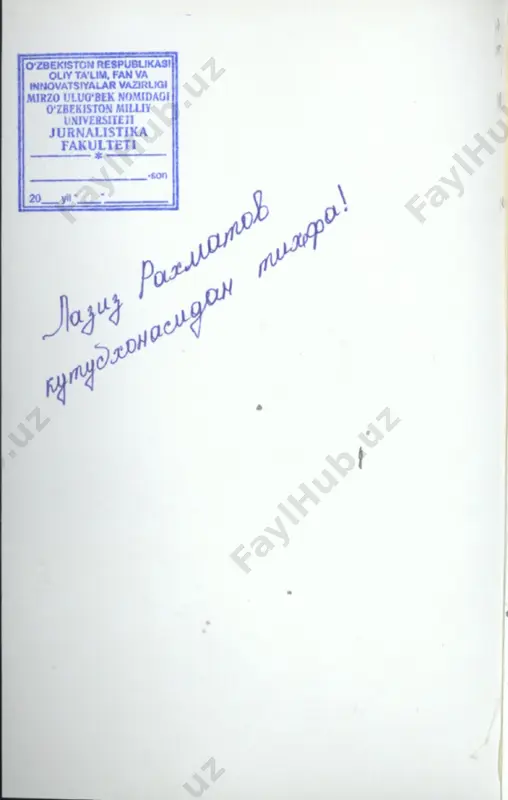 O'ZBEKISTON RESPUBLIKASI
OLIY TA'LIM, FAN VA
INNOVATSIYALAR VAZIRLIGI
MIRZO ULUG'BEK NOMIDAGI
O'ZBEKISTON MILLIY
UNIVERSITETI
JURNALISTIKA
FAKULTETI
-son
20___yil "___"
Лазиз Рахматов
кутубхонасидан тухфа!
FaylHub.uz
FaylHub
.uz
FaylHub.uz
uz